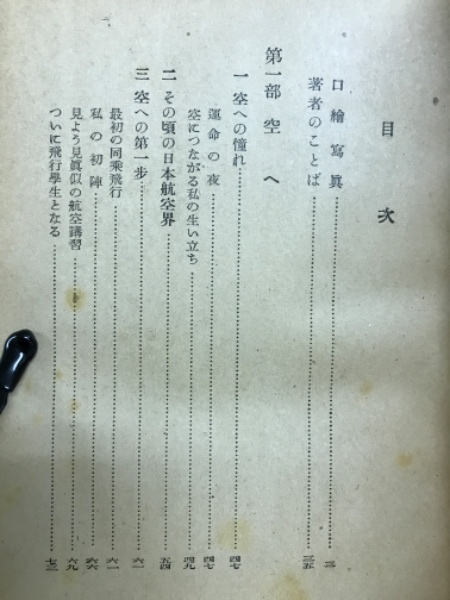 目次
口繪寫眞
著者のことば……三五
第一部 空へ
一 空への憧れ……四七
運命の夜……四七
空につながる私の生い立ち……四九
二 その頃の日本航空界……五四
三 空への第一步……六一
最初の同乘飛行……六一
私の初陣……六六
見よう見眞似の航空講習……六九
ついに飛行學生となる……七三